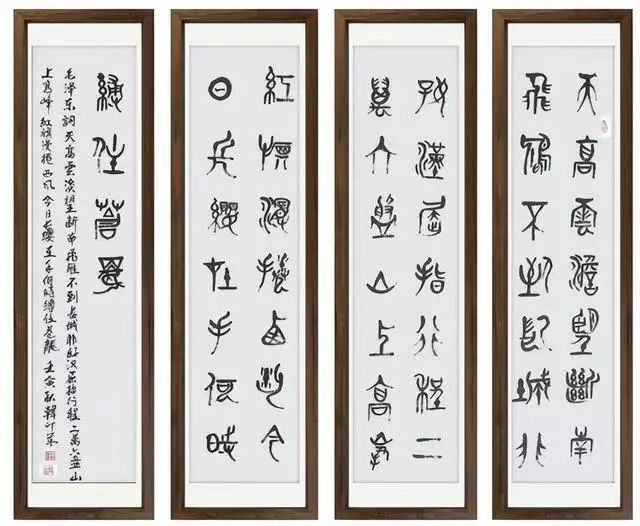 天高雲澹望斷南
飛鴈不到長城非
好漢屈指行程二
萬六盤山上高峰
紅旗漫捲西風今
日長纓在手何時
縛住蒼龍
毛泽东词天高雲淡望断南飛雁不到长城非好汉屈指行程二萬六盘山
上高峰紅旗漫捲西风今日长缨在手何時縛住苍龍壬寅秋韓